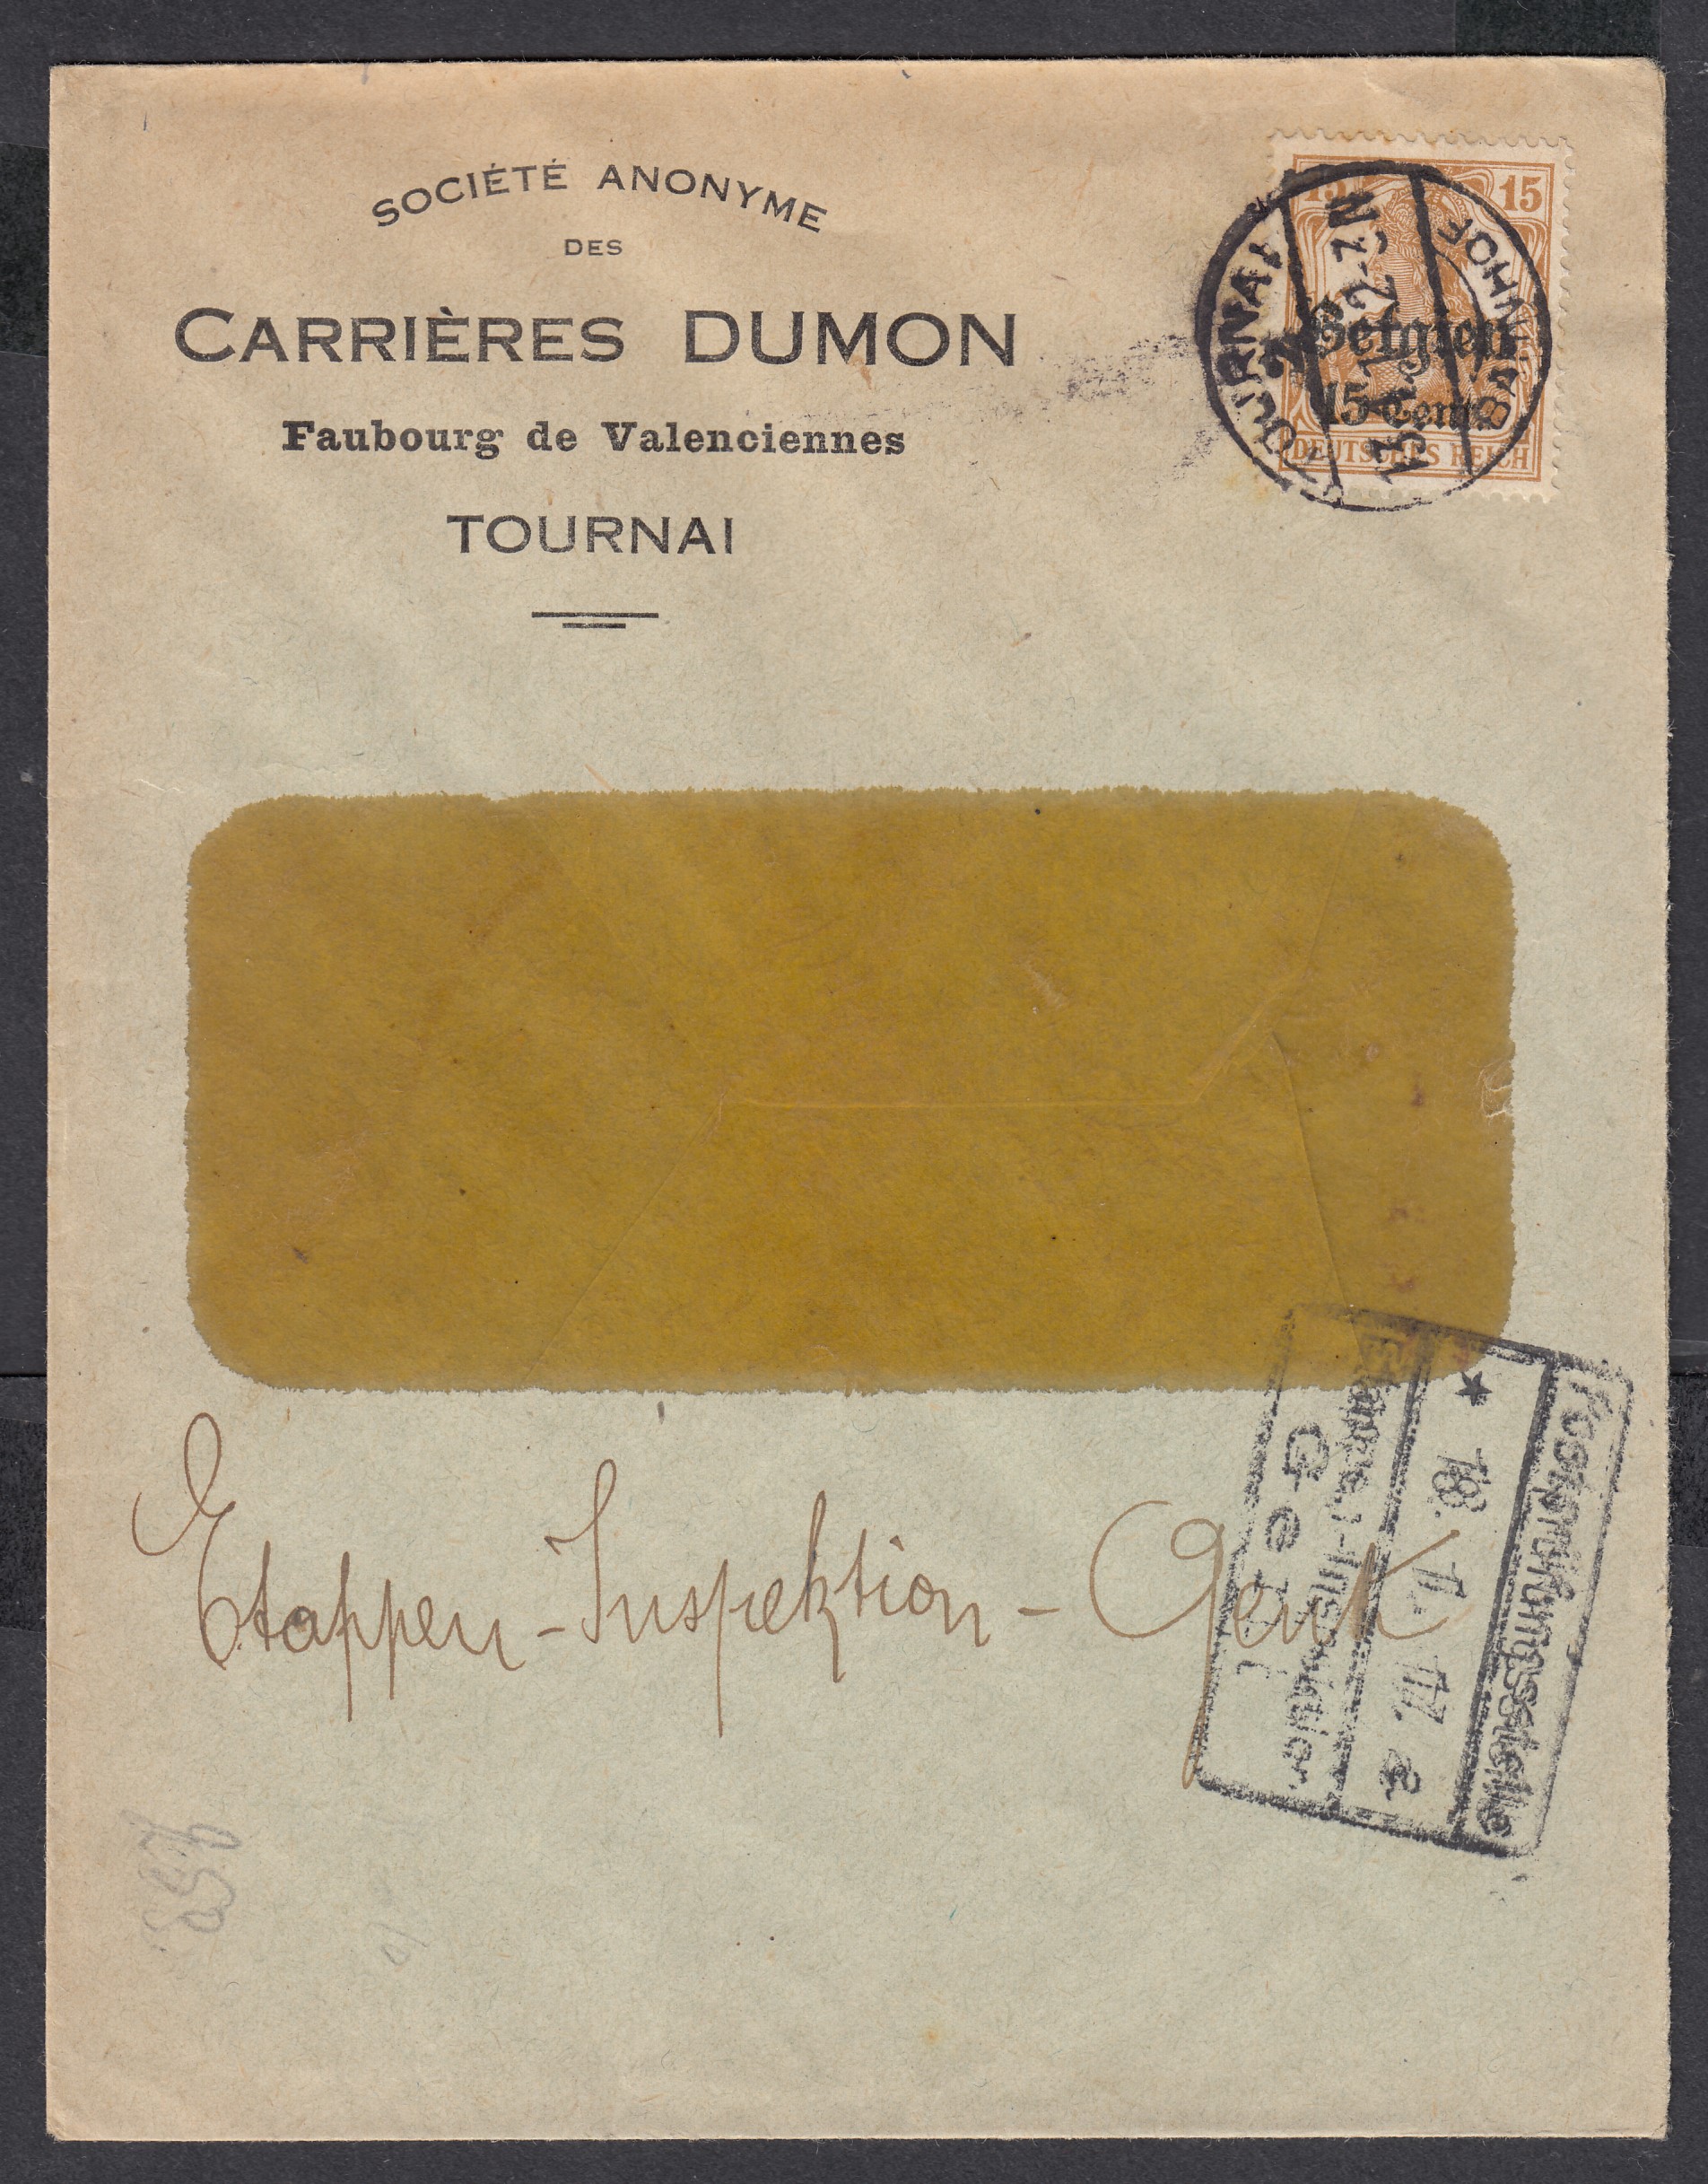 SOCIÉTÉ ANONYME
DES
CARRIÈRES DUMON
Faubourg de Valenciennes
TOURNAI
15 15
Belgien
15 Cent.
DEUTSCHES REICH
TOURNAI
BAHNHOF
Etappen-Inspektion-Gent
Postprüfungsstelle
★ 18. 11. 17. a
Etappen-Inspektion
Gent